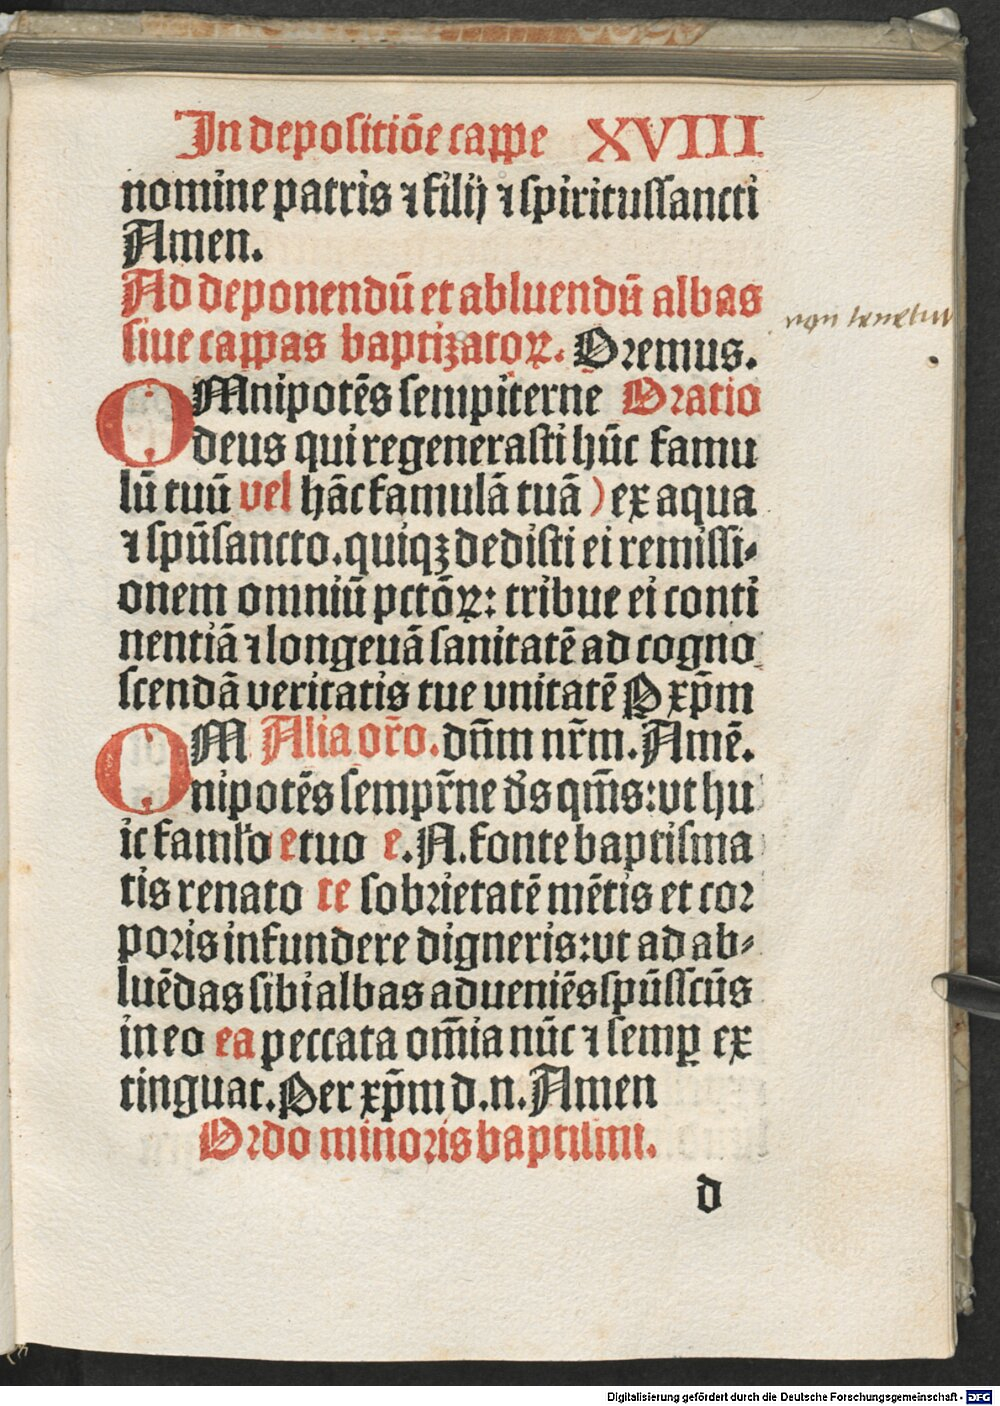 In depositiõe cappe XVIII
nomine patris ⁊ filij ⁊ spiritussancti
Amen.
Ad deponendū et abluendū albas
siue cappas baptizatoꝝ. Oremus.
OMnipotẽs sempiterne Oratio
deus qui regenerasti hūc famu
lū tuū vel hãc famulã tuã ) ex aqua
⁊ spūsancto. quiqꝫ dedisti ei remissi⸗
onem omniū pctõꝝ: tribue ei conti
nentiã ⁊ longeuã sanitatẽ ad cogno
scendã veritatis tue vnitatẽ P xp̄m
OM Alia or̃o. dñm nr̃m. Amẽ.
nipotẽs sempr̃ne ds̃ qm̃s: vt hu
ic famlo e tuo e. N. fonte baptisma
tis renato te sobrietatẽ mẽtis et cor
poris infundere digneris: vt ad ab⸗
luẽdas sibi albas adueniẽs spūsscūs
in eo ea peccata om̃ia nūc ⁊ semꝑ ex
tinguat. Per xp̄m d. n. Amen
Ordo minoris baptismi.
d
non tenetur
Digitalisierung gefördert durch die Deutsche Forschungsgemeinschaft - DFG